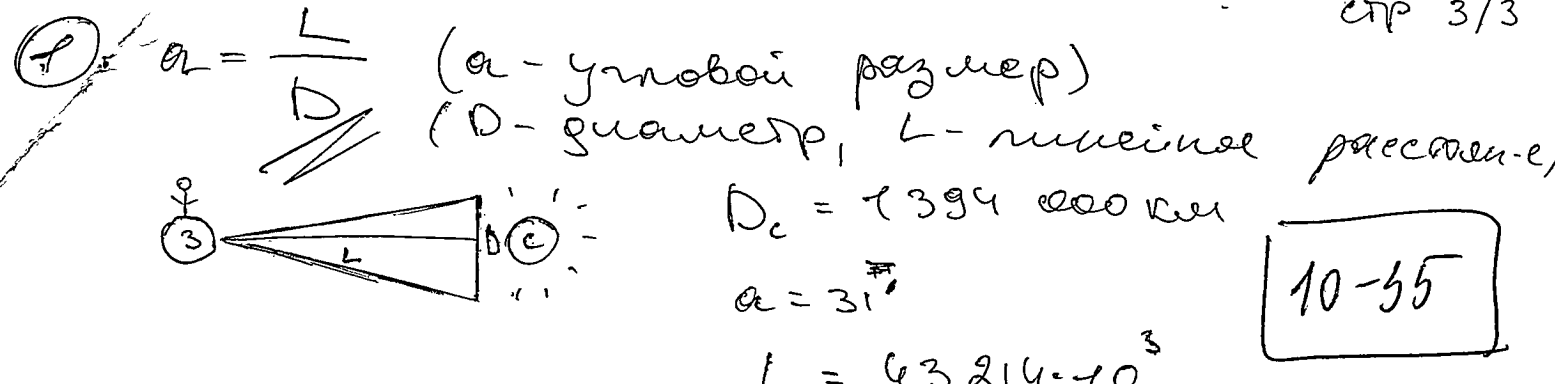 стр 3/3
1. a = L/D (a - угловой размер)
(D - диаметр, L - линейное расстоян-е,
З L D С
Dс = 1394 000 км
a = 31'
10-55
L = 43 214·10³